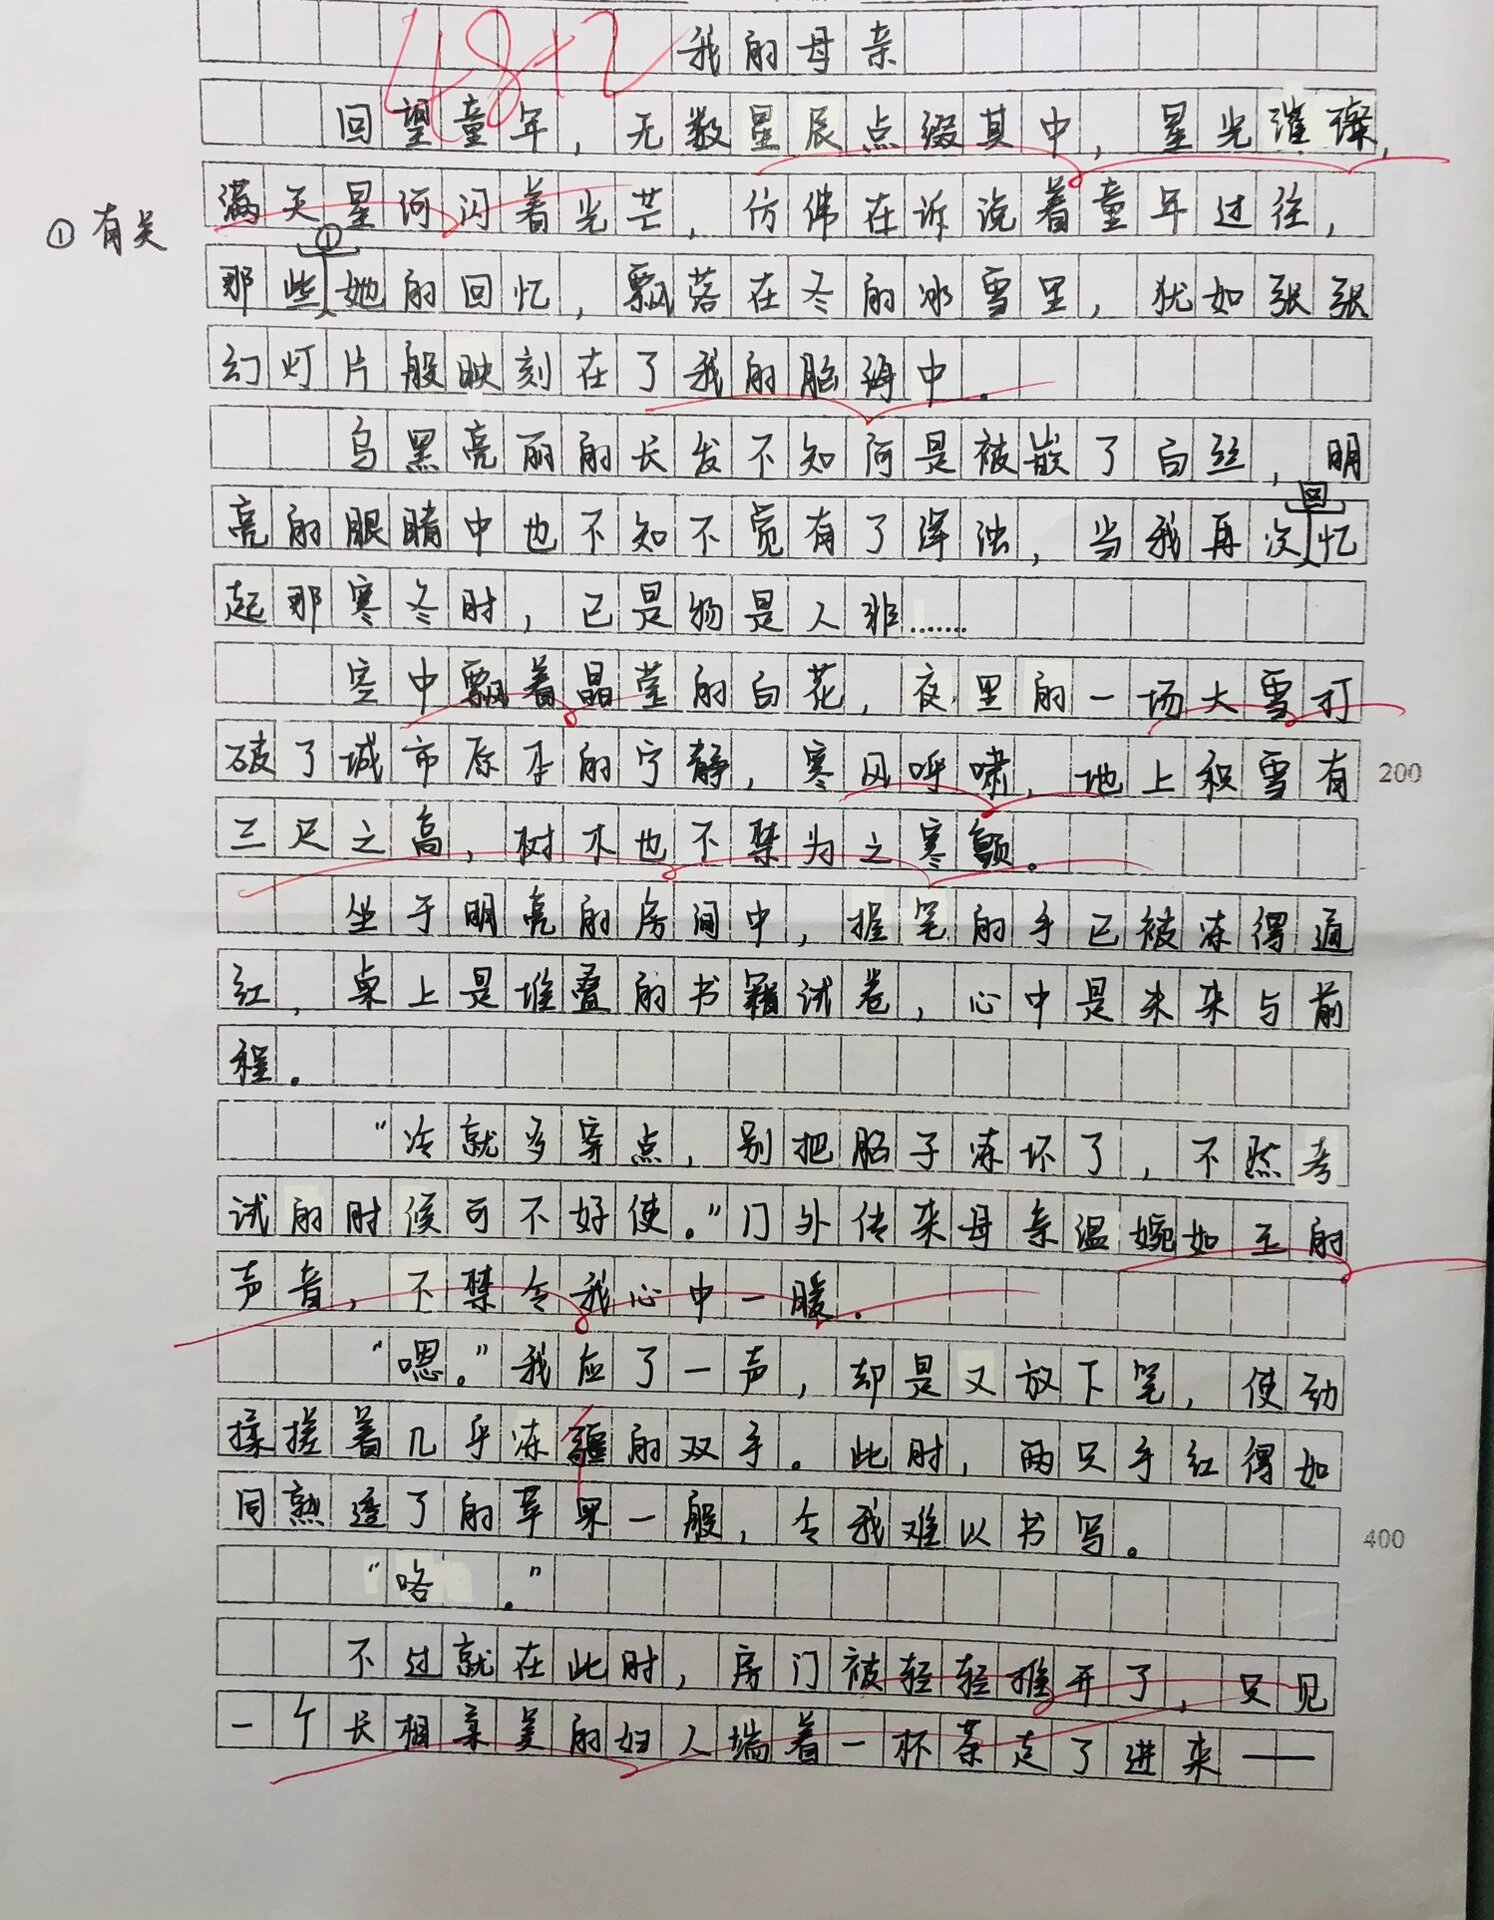 48+2
我的母亲
回望童年，无数星辰点缀其中，星光璀璨，
满天星河闪着光芒，仿佛在诉说着童年过往，
① 有关
①
那些她的回忆，飘落在冬的冰雪里，犹如张张
幻灯片般映刻在了我的脑海中。
乌黑亮丽的长发不知何是被嵌了白丝，明
回
亮的眼睛中也不知不觉有了浑浊，当我再次忆
起那寒冬时，已是物是人非……
空中飘着晶莹的白花，夜里的一场大雪打
破了城市原本的宁静，寒风呼啸，地上积雪有
200
三尺之高，树木也不禁为之寒颤。
坐于明亮的房间中，握笔的手已被冻得通
红，桌上是堆叠的书籍试卷，心中是未来与前
程。
“冷就多穿点，别把脑子冻坏了，不然考
试的时候可不好使。”门外传来母亲温婉如玉的
声音，不禁令我心中一暖。
“嗯。”我应了一声，却是又放下笔，使劲
揉搓着几乎冻疆的双手。此时，两只手红得如
同熟透了的苹果一般，令我难以书写。
400
“咯 。”
不过就在此时，房门被轻轻推开了，只见
一个长相柔美的妇人端着一杯茶走了进来——